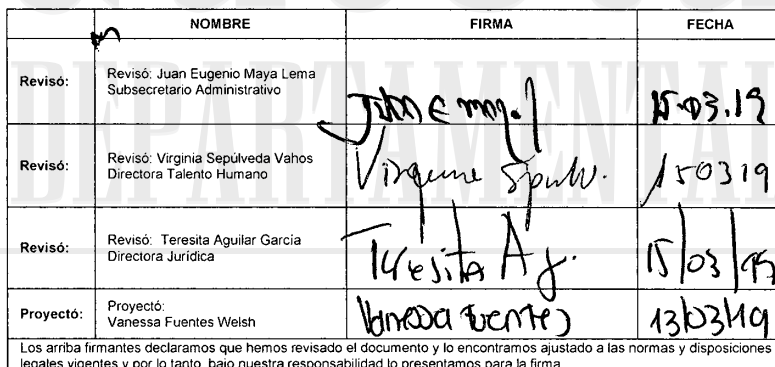 NOMBRE FIRMA FECHA
Revisó: Revisó: Juan Eugenio Maya Lema
Subsecretario Administrativo
Juan E May. 15.03.19
Revisó: Revisó: Virginia Sepúlveda Vahos
Directora Talento Humano
150319
Revisó: Revisó: Teresita Aguilar García
Directora Jurídica
Teresita A 15/03/19
Proyectó: Proyectó:
Vanessa Fuentes Welsh
Vanessa Fuentes 13/03/19
DEPARTAMENTAL
Los arriba firmantes declaramos que hemos revisado el documento y lo encontramos ajustado a las normas y disposiciones
legales vigentes y por lo tanto, bajo nuestra responsabilidad lo presentamos para la firma